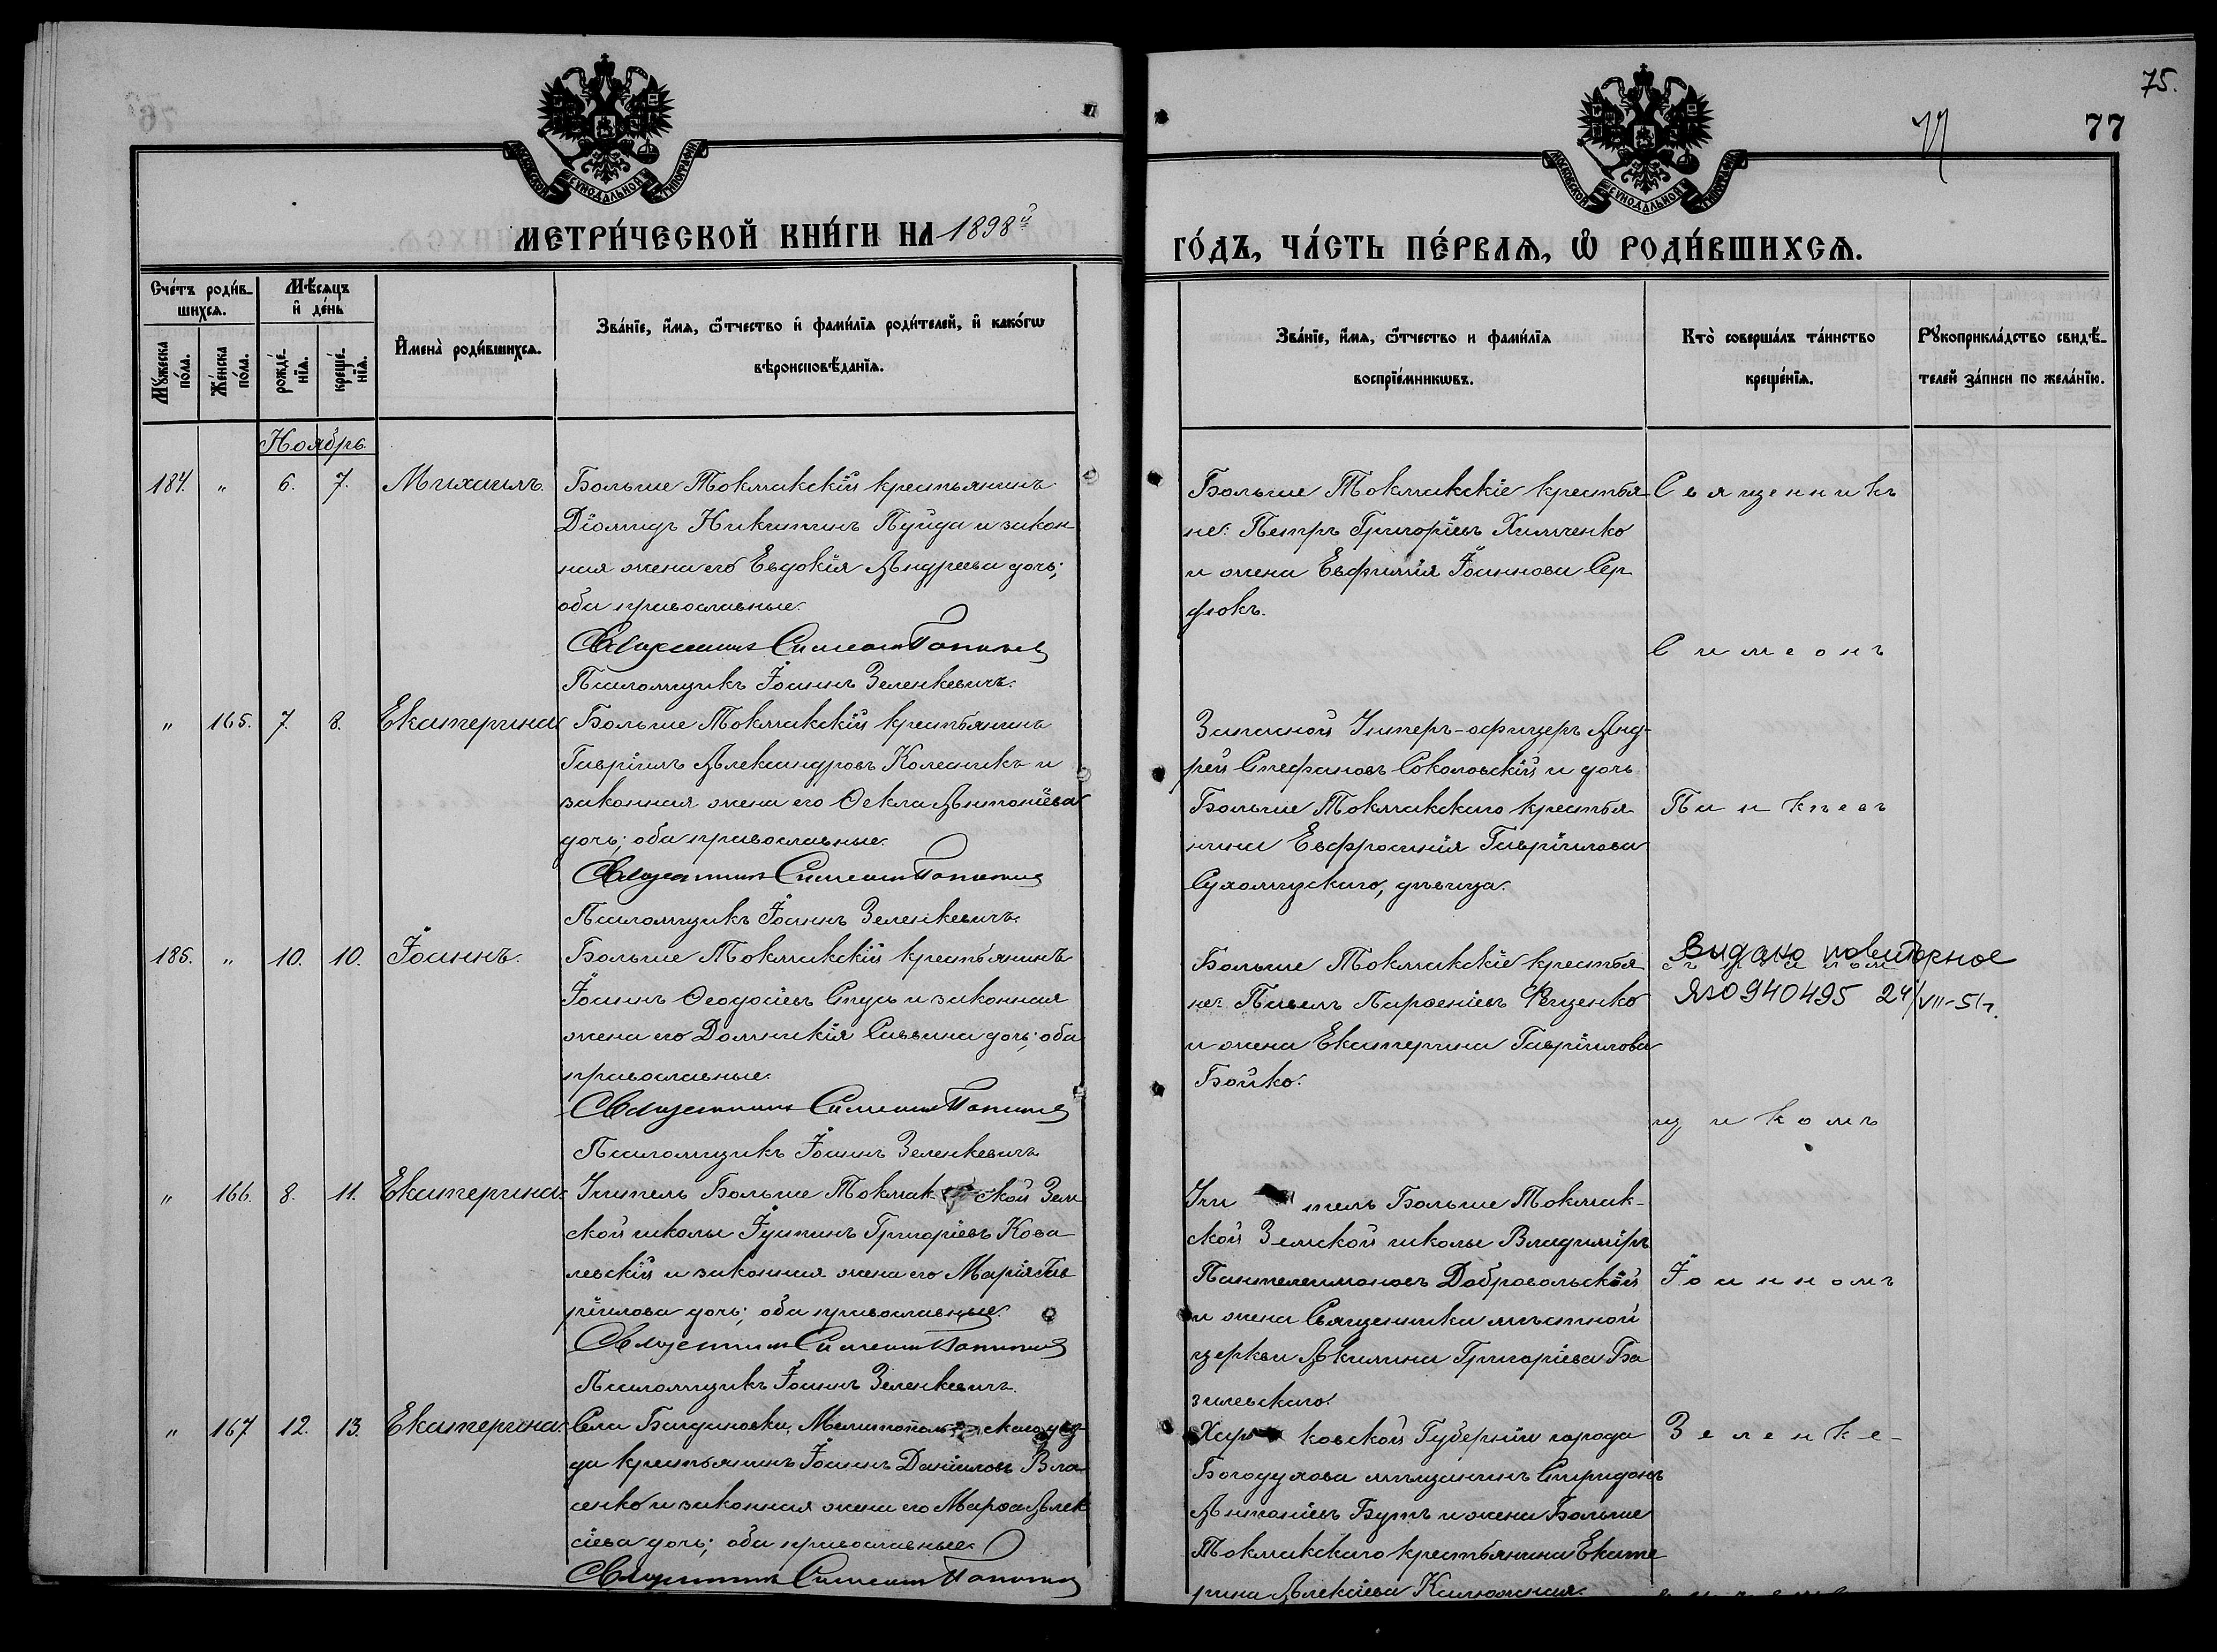 75.
77
77
МОСКОВСКОЙ СѴНОДАЛЬНОЙ ТИПОГРАФІИ
МОСКОВСКОЙ СѴНОДАЛЬНОЙ ТИПОГРАФІИ
МЕТРИ́ЧЕСКОЙ КНИ́ГИ НА 1898й
ГО́ДЪ, ЧА́СТЬ ПЕ́РВАѦ, Ѡ҆ РОДИ́ВШИХСѦ.
Сче́тъ роди́в-
шихсѧ.
Мꙋжеска по́ла.
Же́нска по́ла.
Мѣ́сѧцъ
и҆ де́нь
рожде́-
нїѧ.
креще́-
нїѧ.
И҆мена̀ роди́вшихсѧ.
Зва́нїе, и҆́мѧ, ѻ҆́тчество и҆ фами́лїѧ роди́телей, и҆ како́гѡ
вѣроисповѣ́данїѧ.
Зва́нїе, и҆́мѧ, ѻ҆́тчество и фами́лїѧ
воспрїе́мникѡвъ.
Кто̀ соверша́лъ та́инство
креще́нїѧ.
Рꙋкоприкла́дство свидѣ́-
телей за́писи по жела́нїю.
Ноябрь
184. " 6. 7. Михаилъ.
Больше Токмакскій крестьянинъ
Діомидъ Никитинъ Пуйда и закон-
ная жена его Евдокія Андреева дочь;
оба православные.
Священникъ Симеонъ
Псаломщикъ Іоаннъ Зеленкевичъ.
Больше Токмакскіе крестья
не: Петръ Григоріевъ Химченко
и жена Евфимія Іоаннова Сер
дюкъ.
Священникъ
Симеонъ
" 165. 7. 8. Екатерина
Больше Токмакскій крестьянинъ
Гавріилъ Александровъ Колесникъ и
законная жена его Ѳекла Антоніева
дочь; оба православные.
Священникъ Симеонъ
Псаломщикъ Іоаннъ Зеленкевичъ.
Запасной Унтеръ-офицеръ Анд-
рей Стефановъ Соколовскій и дочь
Больше Токмакскаго крестья
нина Евфросинія Гавріилова
Сухомлускаго, дѣвица.
185. " 10. 10. Іоаннъ.
Больше Токмакскій крестьянинъ
Іоаннъ Ѳеодосіевъ Стусь и законная
жена его Домникія Саввина дочь; оба
православные.
Священникъ Симеонъ
Псаломщикъ Іоаннъ Зеленкевичъ
Больше Токмакскіе крестья
не: Павелъ Парѳеніевъ
и жена Екатерина Гавріилова
Бойко.
Видано повторное
ЯЮ 940495 24/VII-51г.
щикомъ
" 166. 8. 11. Екатерина.
Учитель Больше Токмакской Зем
ской школы Іустинъ Григоріевъ Кова
левскій и законная жена его Марія Гав
ріилова дочь; оба православные.
Священникъ Симеонъ
Псаломщикъ Іоаннъ Зеленкевичъ.
Учитель Больше Токмак-
ской Земской школы Владиміръ
Пантелеимоновъ Добровольскій
и жена Священника мѣстной
церкви Акилина Григоріева Ба
зилевскаго.
Іоанномъ
" 167 12. 13. Екатерина.
Села Богдановки, Мелитопольскаго уѣз-
да крестьянинъ Іоаннъ Даніиловъ Вла
сенко и законная жена его Марѳа Алек
сіева дочь; оба православные.
Священникъ Симеонъ
Харьковской Губерніи города
Богодухова мѣщанинъ Спиридонъ
Антоніевъ Бутъ и жена Больше
Токмакскаго крестьянина Екате
рина Алексіева Калюжная.
Зеленке-